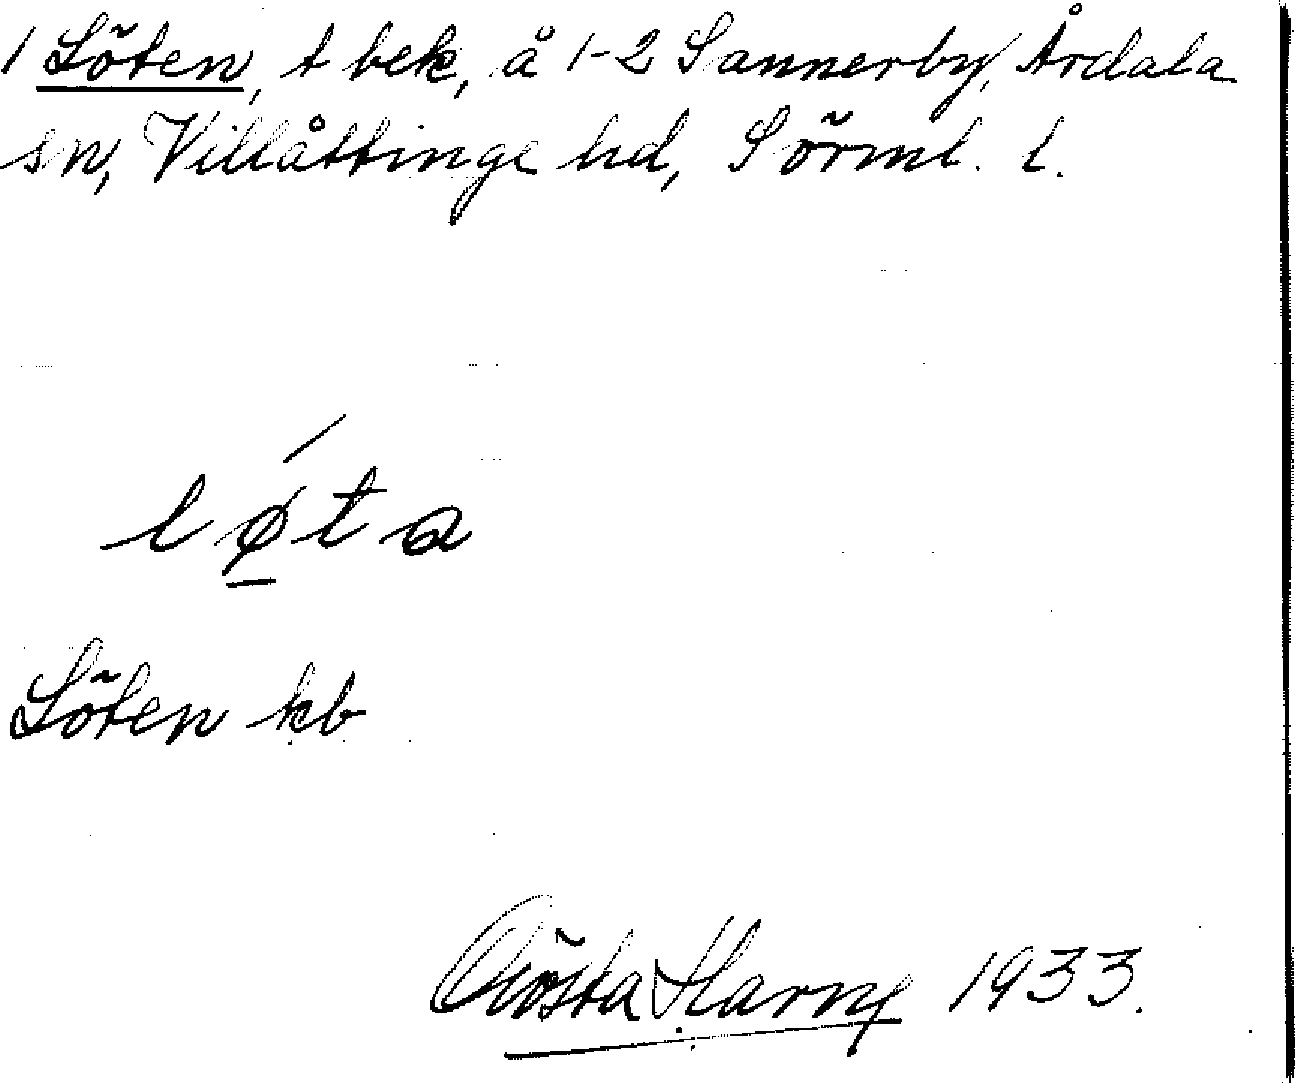 1 Löten, t bek, å 1-2 Sannerby, Årdala
sn, Villåttinge hd, Sörml. l.
løta
Löten kb
Gösta Harny 1933.